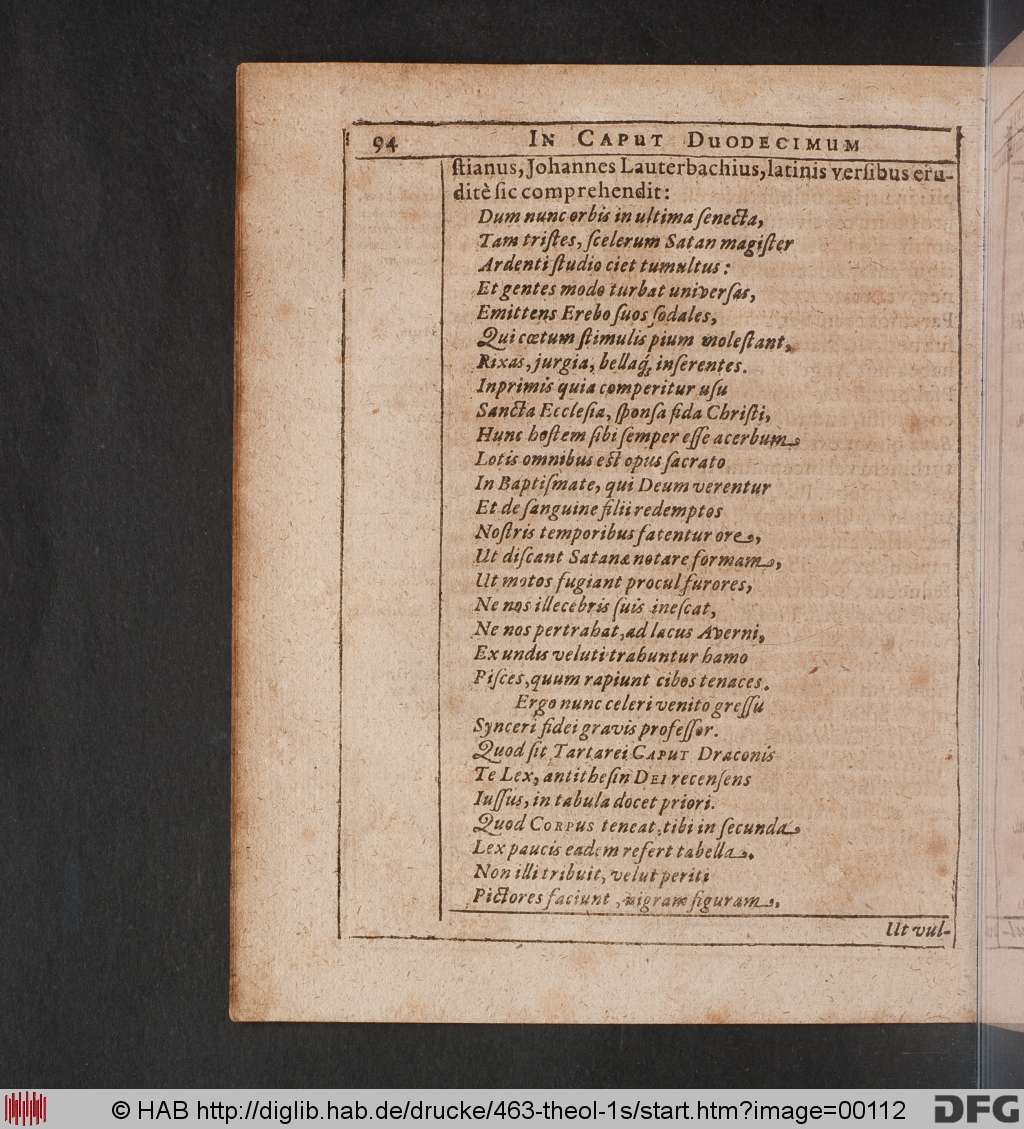 94 IN CAPUT DUODECIMUM
ſtianus, Johannes Lauterbachius, latinis verſibus eru-
ditè ſic comprehendit:
Dum nunc orbis in ultima ſenecta,
Tam triſtes, ſcelerum Satan magiſter
Ardenti ſtudio ciet tumultus:
Et gentes modo turbat univerſas,
Emittens Erebo ſuos ſodales,
Qui cœtum ſtimulis pium moleſtant,
Rixas, jurgia, bellaq́; inſerentes.
Inprimis quia comperitur uſu
Sancta Eccleſia, ſponſa fida Chriſti,
Hunc hoſtem ſibi ſemper eſſe acerbum
Lotis omnibus est opus ſacrato
In Baptiſmate, qui Deum verentur
Et de ſanguine filii redemptos
Noſtris temporibus fatentur ore,
Ut diſcant Satanæ notare formam,
Ut motos fugiant procul furores,
Ne nos illecebris ſuis ineſcat,
Ne nos pertrahat, ad lacus Averni,
Ex undis veluti trahuntur hamo
Piſces, quum rapiunt cibos tenaces.
Ergo nunc celeri venito greſſu
Synceri fidei gravis profeſſor.
Quod ſit Tartarei CAPUT Draconis
Te Lex, antitheſin DEI recenſens
Iuſſus, in tabula docet priori.
Quod CORPUS teneat, tibi in ſecunda
Lex paucis eadem refert tabella.
Non illi tribuit, velut periti
Pictores faciunt, nigram figuram,
Ut vul-
© HAB http://diglib.hab.de/drucke/463-theol-1s/start.htm?image=00112 DFG